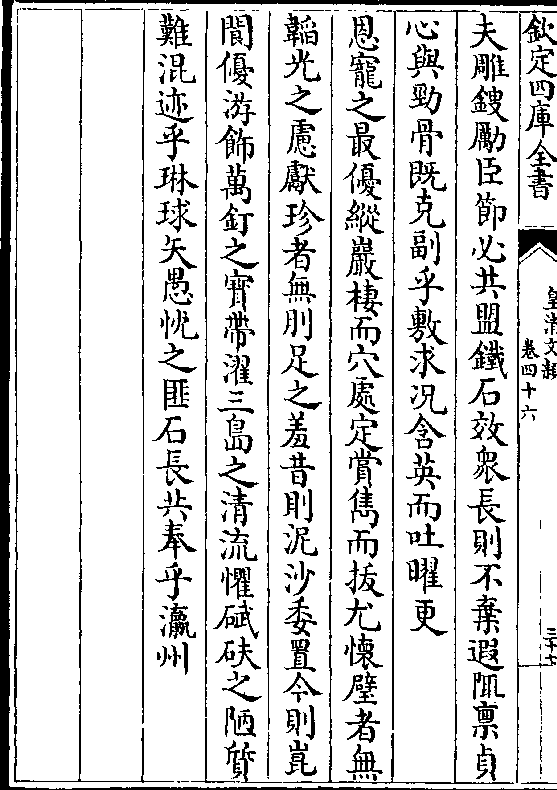 欽定四庫全書
皇清文穎
卷四十六
三十七
夫雕鎪勵臣節必共盟鐵石效衆長則不棄遐陬禀貞
心與勁骨既克副乎敷求况含英而吐曜更
恩寵之最優縱巖棲而穴處定賞雋而拔尤懐璧者無
韜光之慮獻珍者無刖足之羞昔則泥沙委置今則崑
閬優游飾萬釘之寶帶濯三島之清流懼碔砆之陋質
難混迹乎琳球矢愚忱之匪石長共奉乎瀛州